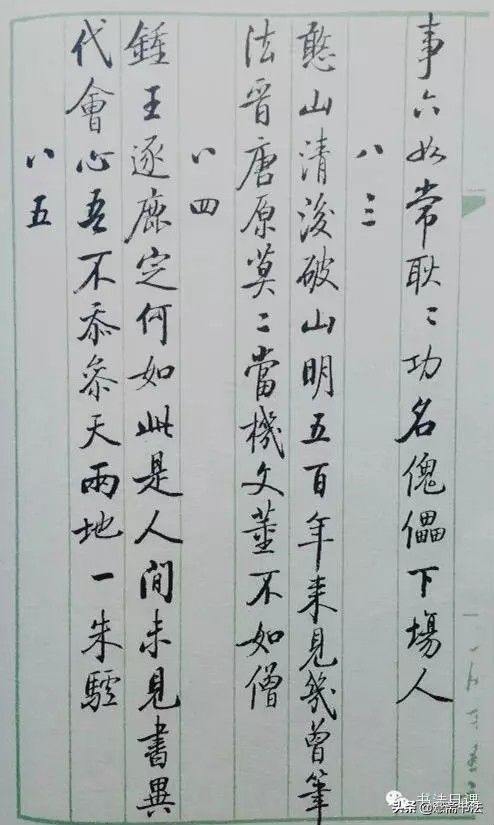 事六如常耿〻功名傀儡下場人
八三
憨山清後破山明五百年来見幾曾筆
法晉唐原莫〻當機文董不如僧
八四
鍾王逐鹿定何如此是人間未見書異
代會心吾不忝參天兩地一朱驢
八五
书法日课
头条@憨斋书法